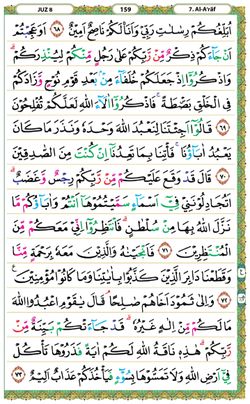 JUZ 8 159 7. Al-A'râf
اُبَلِّغُكُمْ رِسٰلٰتِ رَبِّيْ وَاَنَا۠ لَكُمْ نَاصِحٌ اَمِيْنٌ ﴿٦٨﴾ اَوَعَجِبْتُمْ
اَنْ جَاۤءَكُمْ ذِكْرٌ مِّنْ رَّبِّكُمْ عَلٰى رَجُلٍ مِّنْكُمْ لِيُنْذِرَكُمْۗ
وَاذْكُرُوْٓا اِذْ جَعَلَكُمْ خُلَفَاۤءَ مِنْۢ بَعْدِ قَوْمِ نُوْحٍ وَّزَادَكُمْ
فِى الْخَلْقِ بَصْۣطَةً ۚ فَاذْكُرُوْٓا اٰلَاۤءَ اللّٰهِ لَعَلَّكُمْ تُفْلِحُوْنَ
﴿٦٩﴾ قَالُوْٓا اَجِئْتَنَا لِنَعْبُدَ اللّٰهَ وَحْدَهٗ وَنَذَرَ مَا كَانَ
يَعْبُدُ اٰبَاۤؤُنَا ۚ فَأْتِنَا بِمَا تَعِدُنَآ اِنْ كُنْتَ مِنَ الصّٰدِقِيْنَ
﴿٧٠﴾ قَالَ قَدْ وَقَعَ عَلَيْكُمْ مِّنْ رَّبِّكُمْ رِجْسٌ وَّغَضَبٌۗ
اَتُجَادِلُوْنَنِيْ فِيْٓ اَسْمَاۤءٍ سَمَّيْتُمُوْهَآ اَنْتُمْ وَاٰبَاۤؤُكُمْ مَّا
نَزَّلَ اللّٰهُ بِهَا مِنْ سُلْطٰنٍۗ فَانْتَظِرُوْٓا اِنِّيْ مَعَكُمْ مِّنَ
الْمُنْتَظِرِيْنَ ﴿٧١﴾ فَاَنْجَيْنٰهُ وَالَّذِيْنَ مَعَهٗ بِرَحْمَةٍ مِّنَّا
وَقَطَعْنَا دَابِرَ الَّذِيْنَ كَذَّبُوْا بِاٰيٰتِنَا وَمَا كَانُوْا مُؤْمِنِيْنَ
﴿٧٢﴾ وَاِلٰى ثَمُوْدَ اَخَاهُمْ صٰلِحًا ۘ قَالَ يٰقَوْمِ اعْبُدُوا اللّٰهَ
مَا لَكُمْ مِّنْ اِلٰهٍ غَيْرُهٗۗ قَدْ جَاۤءَتْكُمْ بَيِّنَةٌ مِّنْ
رَّبِّكُمْۗ هٰذِهٖ نَاقَةُ اللّٰهِ لَكُمْ اٰيَةً فَذَرُوْهَا تَأْكُلْ
فِيْٓ اَرْضِ اللّٰهِ وَلَا تَمَسُّوْهَا بِسُوْۤءٍ فَيَأْخُذَكُمْ عَذَابٌ اَلِيْمٌ ﴿٧٣﴾